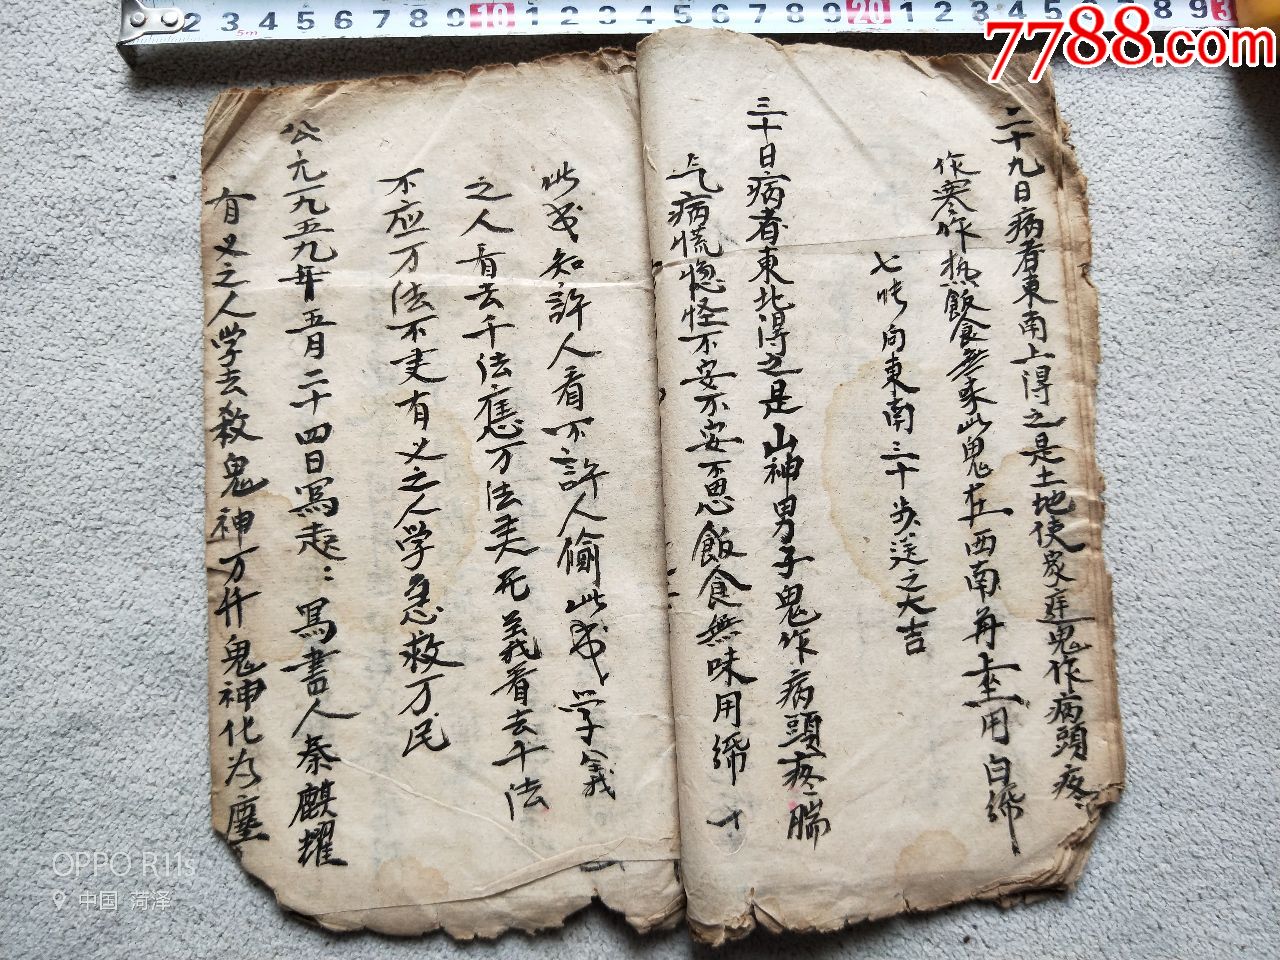 二十九日病者東南上得之是土地使家庭鬼作病頭疼
作寒作热飯食無味此鬼在西南舟上坐用白
七 向東南三十步送之大吉
三十日病者東北得之是山神男子鬼作病頭疼腦
气病慌惚怪不安不安不思飯食無味用 十
此 知許人看不許人偷此 学義
之人看去千法應万法灵死義看去千法
不应万法不灵有义之人学急救万民
公元一九五九年五月二十四日寫起：寫書人秦麒耀
有义之人学去殺鬼神万仟鬼神化为塵
7788.com
OPPO R11s
中国 菏泽
2 3 4 5 6 7 8 9 10 1 2 3 4 5 6 7 8 9 20 1 2 3 4 5 6 7 8 9 3
5m